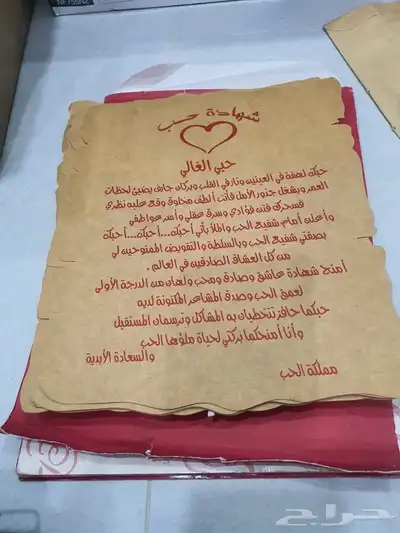 شهادة حب
حبي الغالي
حبك لهفة في العينين ونار في القلب وبركان جارف يضيئ لحظات
العمر ويشعل جذور الأمل فأنت ألطف مخلوق وقع عليه نظري
فسحرك فتن فؤادي وسرق عقلي وأسر عواطفي
وأعلن أمام شفيع الحب والملأ بأني أحبك...أحبك...أحبك
بصفتي شفيع الحب وبالسلطة والتفويض الممنوحين لي
من كل العشاق الصادقين في العالم .
أمنح شهادة عاشق وصادق ومحب ولهان من الدرجة الأولى
لعمق الحب وصدق المشاعر المكنونة لديه
حبكما حافز تتخطيان به المشاكل وترسمان المستقبل
وأنا أمنحكما بركتي لحياة ملؤها الحب
والسعادة الأبدية
مملكة الحب
حراج